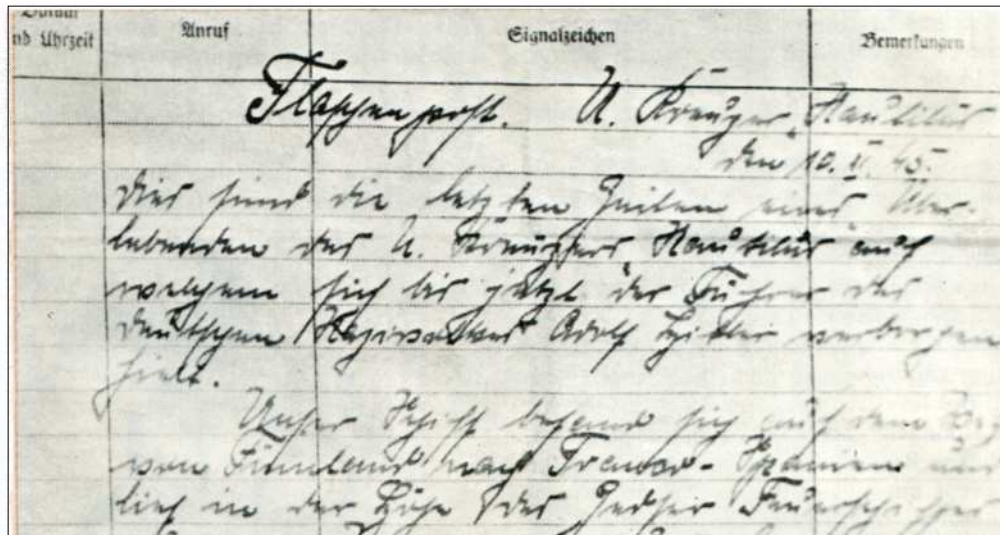 nd Uhrzeit Anruf Signalzeichen Bemerkungen
Flaschenpost. U. Kreuzer „Nautilus
den 10. 45.
Dies sind die letzten Zeilen eines Über-
lebenden des U. Kreuzers „Nautilus“ auf
welchem sich bis jetzt der Führer des
deutschen Adolf Hitler verborgen
hielt.
Unser Schiff befand sich auf dem
von Finnland nach Franco-Spanien und
lief in der Höhe des Gedser Feuerschiffes